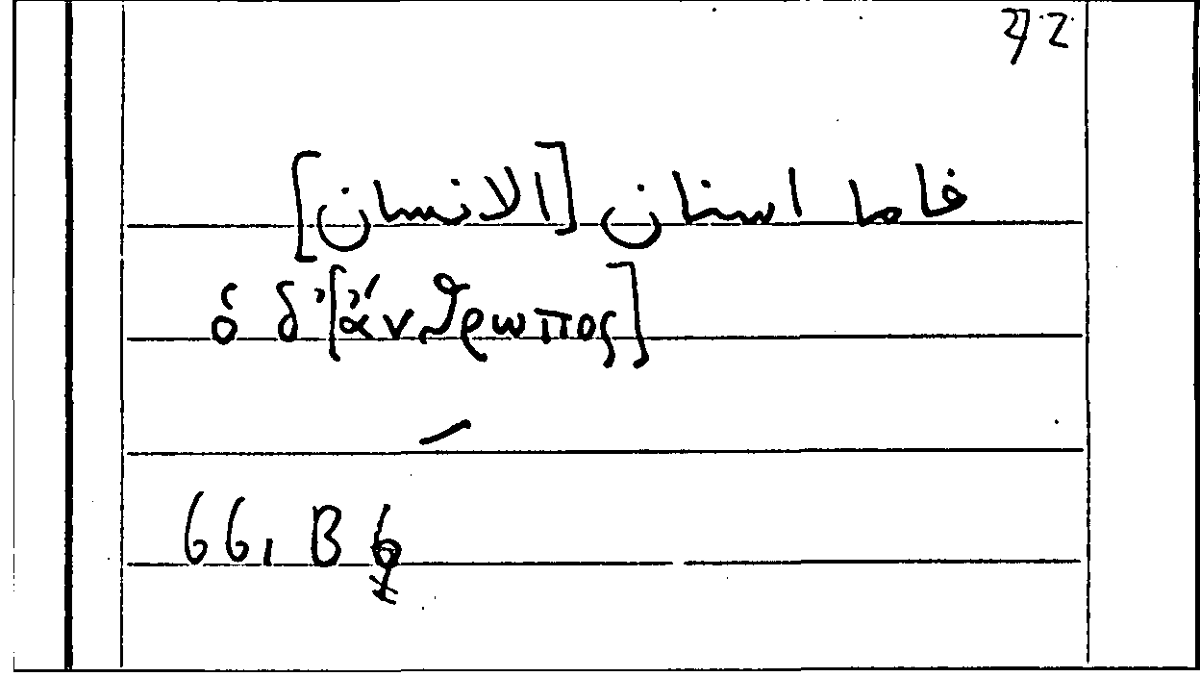 فاما اسنان [الانسان]
ὁ δ’[ἄνθρωπος]
66, B 6